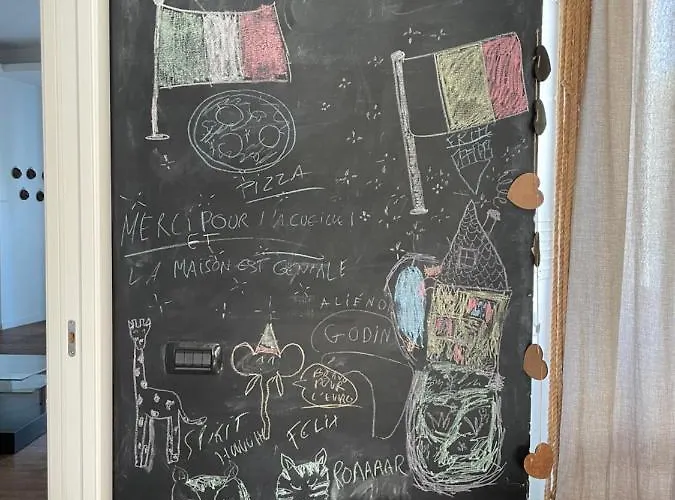 PIZZA
MERCI POUR l'ACCUEIL
ET
LA MAISON EST GENIALE
ALIENO
GODIN
BRAVO
POUR
L'EURO
FELIX
ROAAAAR